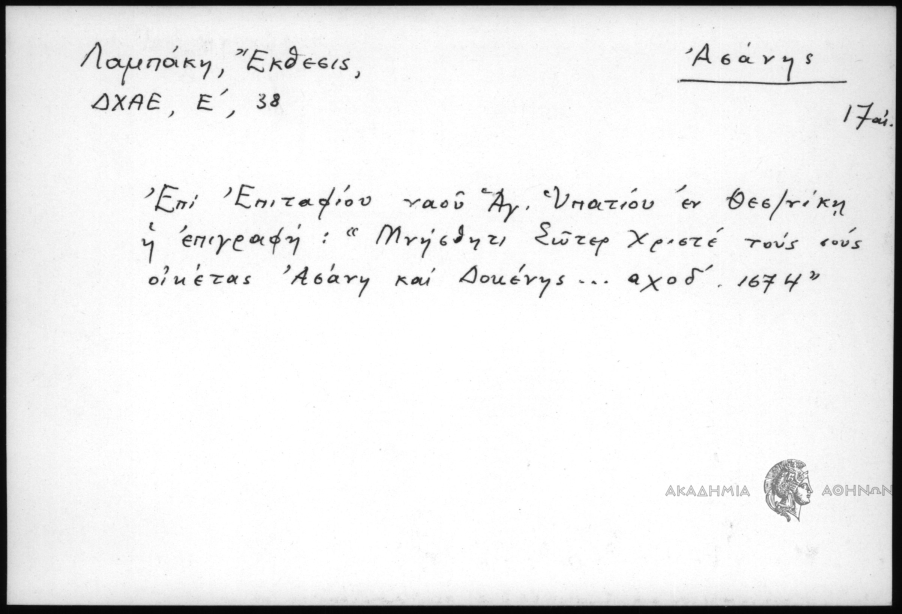 Λαμπάκη, Ἔκθεσις,
ΔΧΑΕ, Ε΄, 38
Ἀσάνης
17 αἰ.
Ἐπί Ἐπιταφίου ναοῦ Ἁγ. Ὑπατίου ἐν Θεσ/νίκῃ
ἡ ἐπιγραφή : “ Μνήσθητι Σῶτερ Χριστέ τούς σούς
οἰκέτας Ἀσάνη καί Δοκένης ... αχοδ΄. 1674”
ΑΚΑΔΗΜΙΑ ΑΘΗΝΩΝ